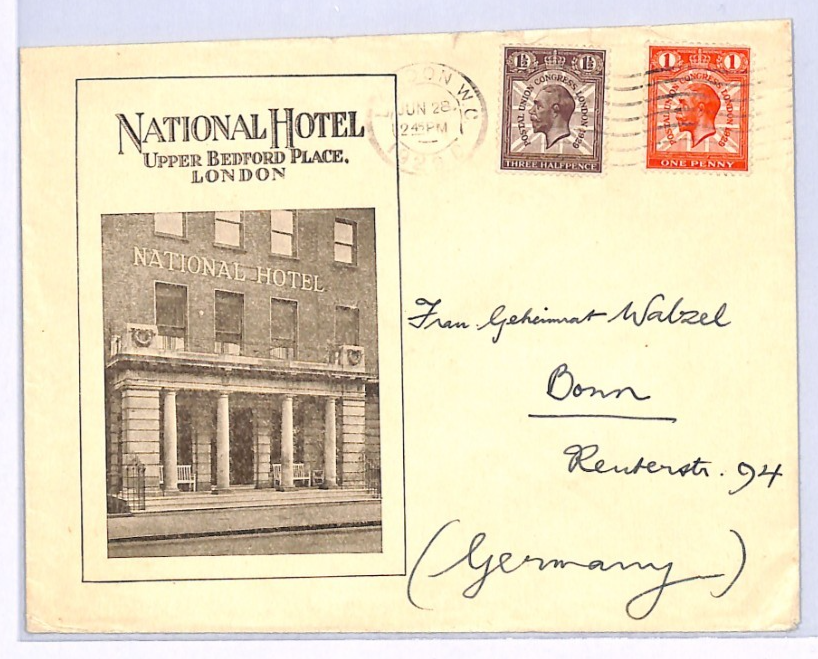 NATIONAL HOTEL
UPPER BEDFORD PLACE.
LONDON
NATIONAL HOTEL
LONDON W.C
JUN 28
2 45 PM
1929
1½ 1½
POSTAL UNION CONGRESS LONDON 1929
THREE HALFPENCE
1 1
POSTAL UNION CONGRESS LONDON 1929
ONE PENNY
Frau Geheimrat Walzel
Bonn
Reuterstr. 94
(Germany)